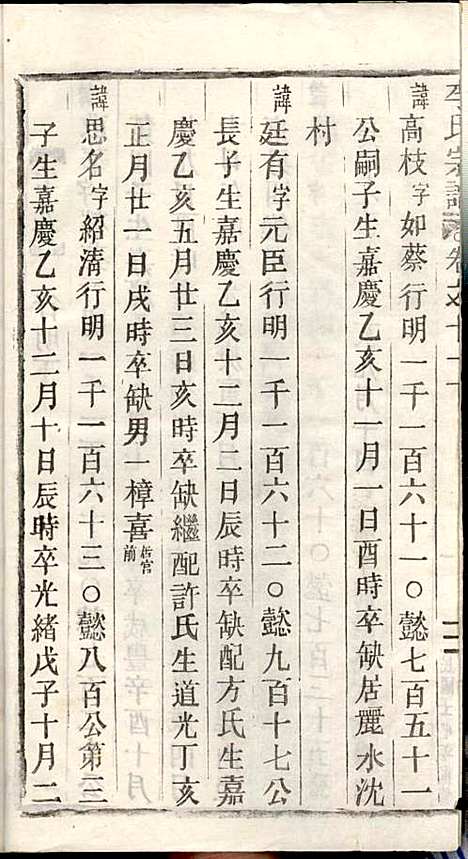 李氏宗譜 卷之十十
諱高枝字如蔡行明一千一百六十一○懿七百五十一
公嗣子生嘉慶乙亥十一月一日酉時卒缺居麗水沈
村
諱廷有字元臣行明一千一百六十二○懿九百十七公
長子生嘉慶乙亥十二月二日辰時卒缺配方氏生嘉
慶乙亥五月廿三日亥時卒缺繼配許氏生道光丁亥
正月廿一日戌時卒缺男一樟喜
諱思名字紹清行明一千一百六十三○懿八百公第三
子生嘉慶乙亥十二月十日辰時卒光緒戊子十月二